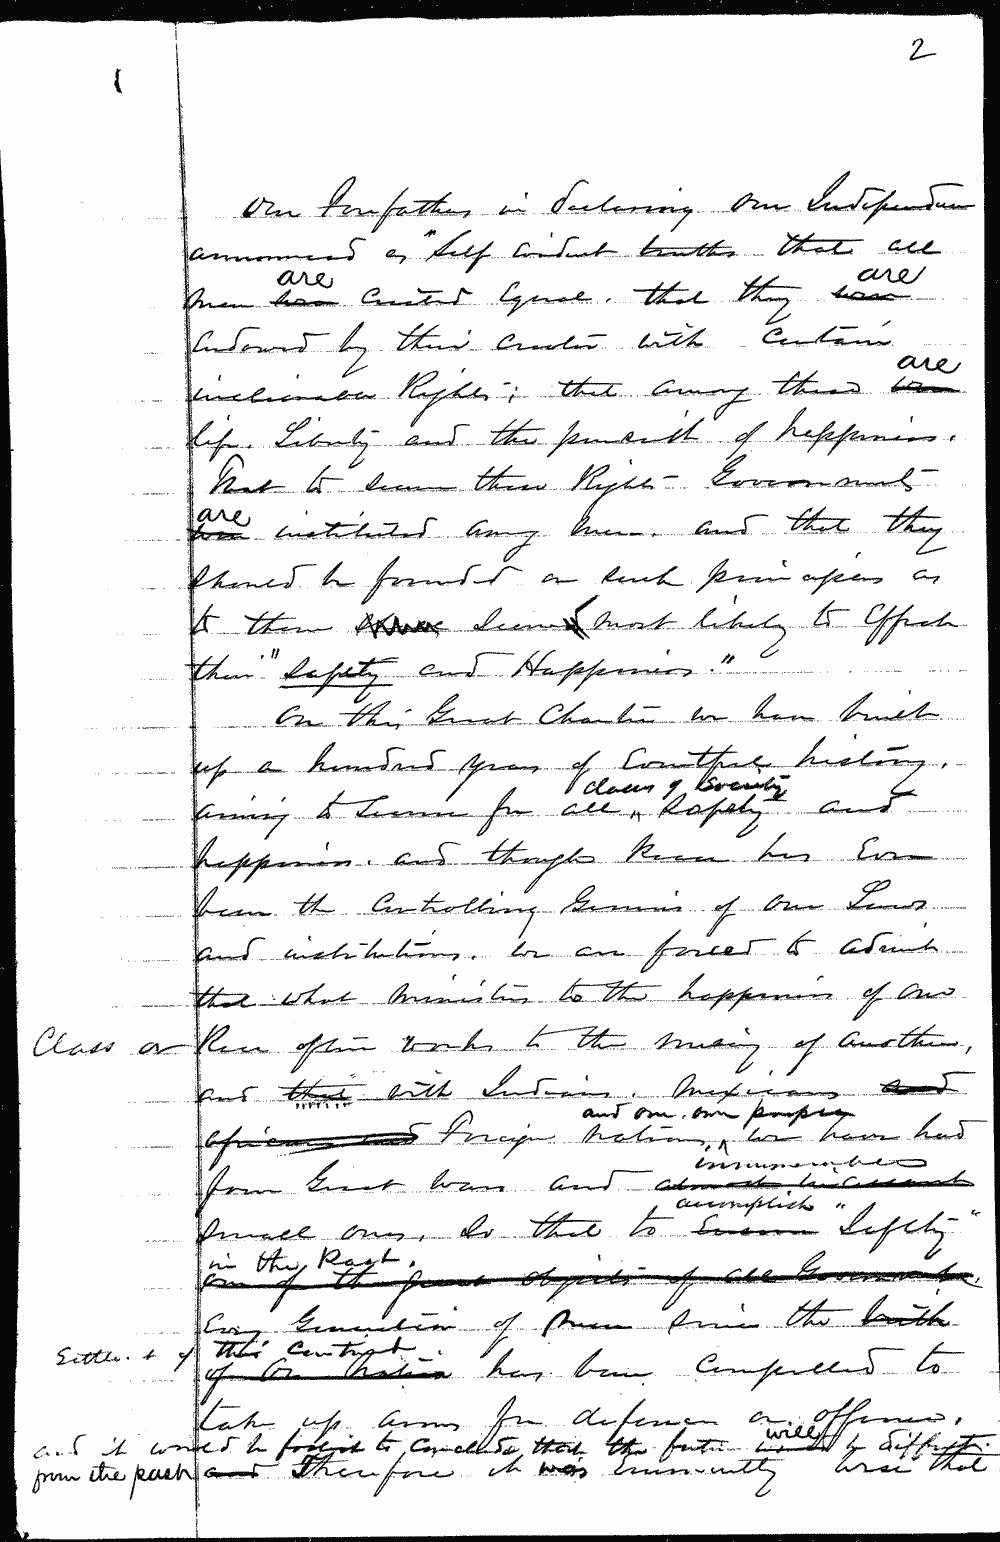 2
1
Our Forefathers in declaring Our Independence
announced as "Self evident truths that all
are are
men were Created Equal. that they were
Endowed by their creator with certain
are
inalienable Rights; that among these were
life. Liberty and the pursuit of happiness.
That to secure these Rights Governments
are
were instituted among Men. and that they
should be founded on such principles as
to them seemed most likely to Effect
their "safety and Happiness."
On this Great Charter we have built
up a hundred years of Eventful history,
classes of Society
aiming to Secure for all "Safety and
happiness. and though Peace has Ever
been the Controlling Genius of our Laws
and institutions. we are forced to admit
that what Ministers to the happiness of one
Class or Race often works to the misery of another,
and that with Indians. Mexicans and
and our own people
Africans and Foreign Nations, we have had
innumerable
four Great Wars and almost incessant
accomplish "
small ones, So that to Ensure Safety"
in the Past.
one of the great objects of all Governments.
Every Generation of Men since the birth
Settlem't of this Continent
of Our Nation has been Compelled to
take up arms for defence or offence.
will
and it would be foolish to conclude that the future would be different
from the past and Therefore it was Eminently wise that